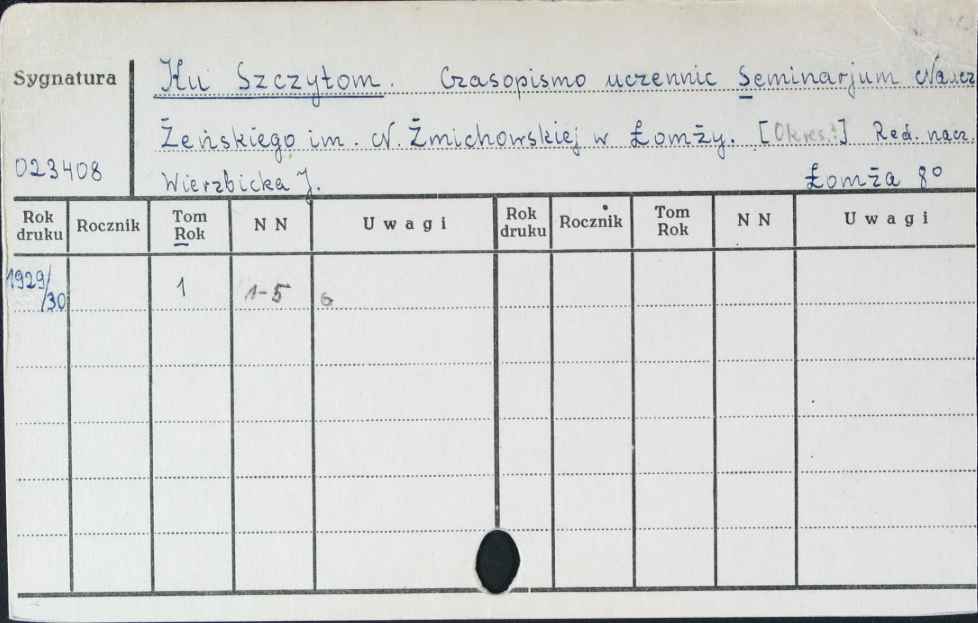 Sygnatura
Ku Szczytom. Czasopismo uczennic Seminarjum Naucz
Żeńskiego im. N. Żmichowskiej w Łomży. [Okres.] Red. nacz.
023408
Wierzbicka J.
Łomża 8°
Rok druku Rocznik Tom Rok NN Uwagi Rok druku Rocznik Tom Rok NN Uwagi
1929/30 1 1-5